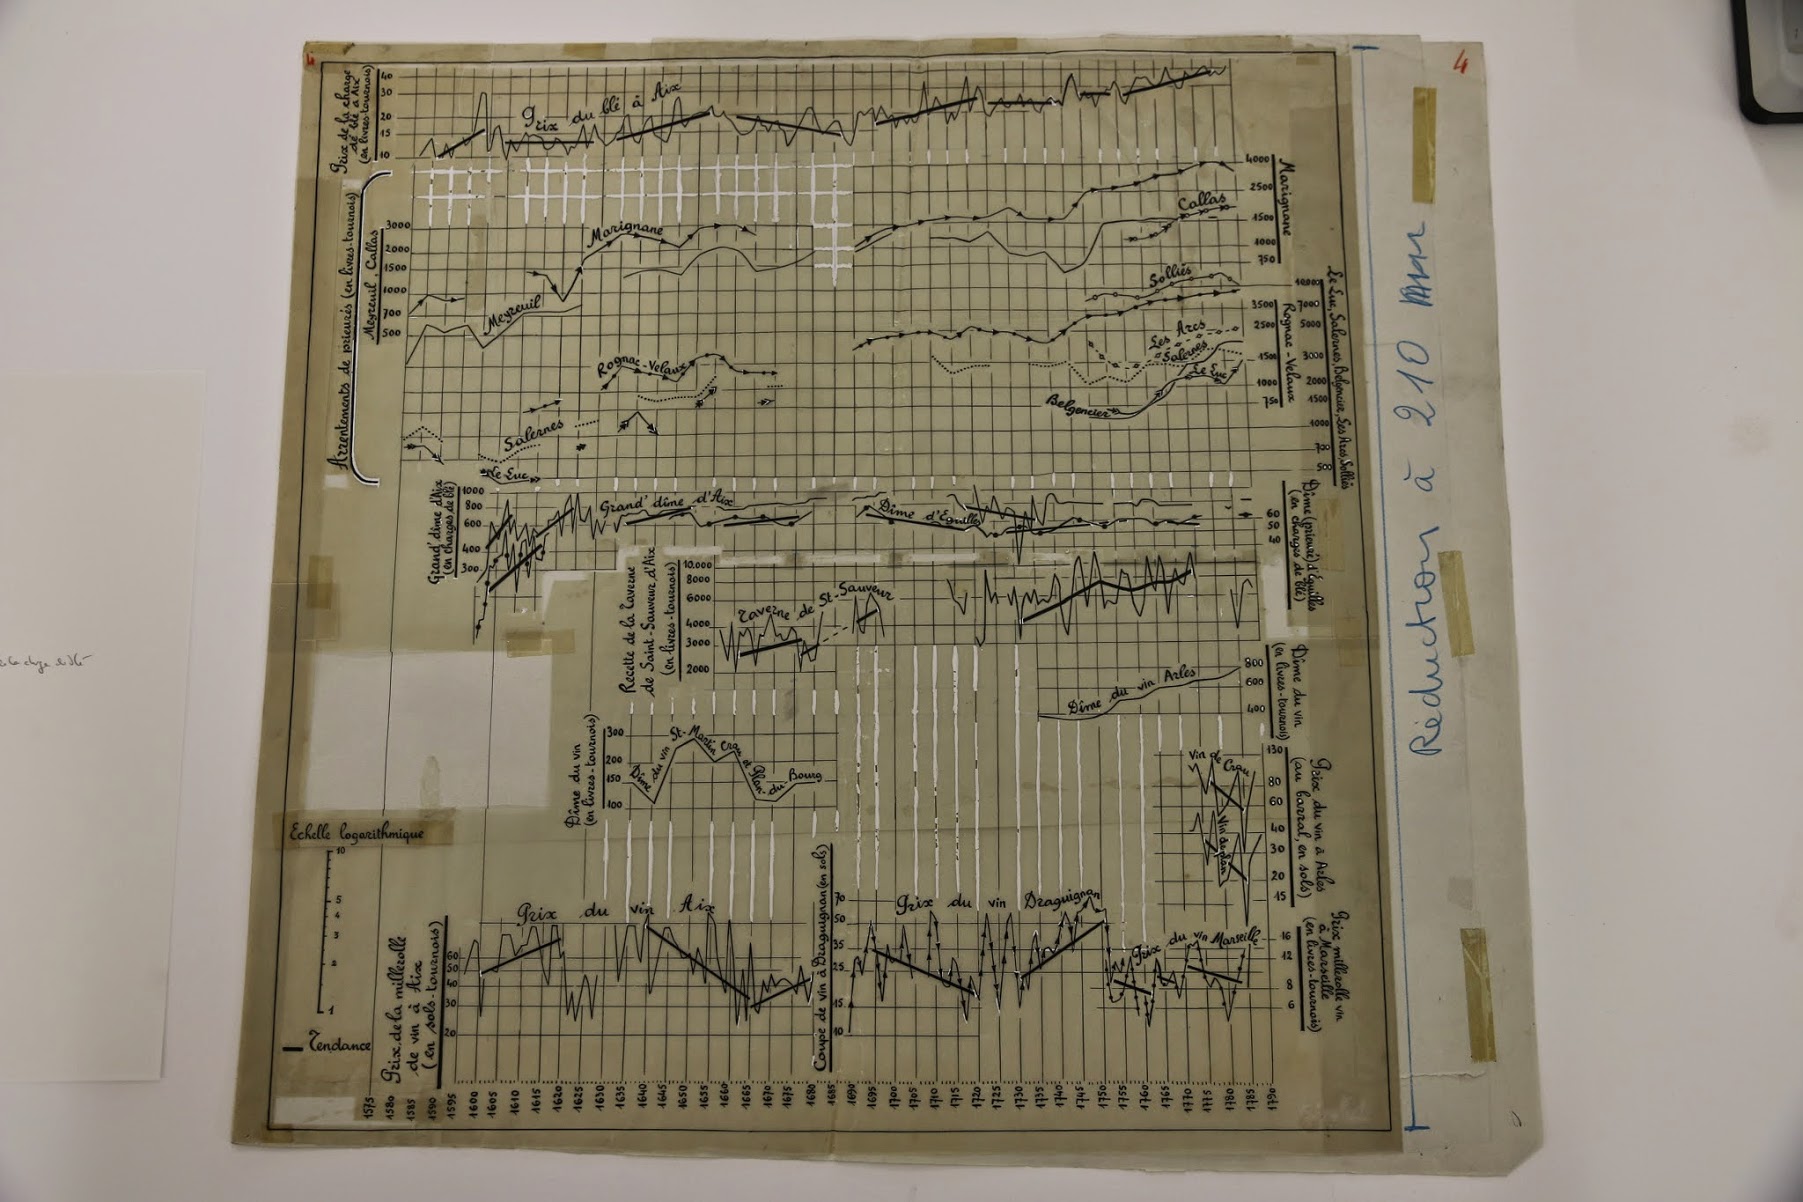 4
Réduction à 210 mm
Prix de la charge
de blé à Aix
(en livres-tournois)
40
30
20
15
10
Prix du blé à Aix
Arrentements de prieurés (en livres-tournois)
Meyreuil, Callas
3000
2000
1500
1000
700
500
Marignane
4000
2500
1500
1000
750
Marignane
Callas
Meyreuil
Solliès
Le Luc, Salernes, Belgencier, Les Arcs, Solliès
10000
7000
5000
3000
2000
1500
1000
700
500
Rognac-Velaux
3500
2500
1500
1000
750
Rognac-Velaux
Les Arcs
Salernes
Le Luc
Belgencier
Salernes
Le Luc
Grand' dîme d'Aix
(en charges de blé)
1000
800
600
400
300
Grand' dîme d'Aix
Dîme d'Eguilles
60
50
40
Dîme (prieuré) d'Eguilles
(en charges de blé)
Recette de la Taverne
de Saint-Sauveur d'Aix
(en livres-tournois)
10.000
8000
6000
4000
3000
2000
Taverne de St-Sauveur
Dîme du vin Arles
800
600
400
Dîme du vin
(en livres-tournois)
Dîme du vin
(en livres-tournois)
300
200
150
100
Dîme du vin St-Martin Crau et Plan-du-Bourg
Vin de Crau
Vin de Plan
130
80
60
40
30
20
15
Prix du vin à Arles
(au barral, en sols)
Echelle logarithmique
10
5
4
3
2
1
Tendance
Prix de la millerolle
de vin à Aix
(en sols-tournois)
60
50
40
30
20
Prix du vin Aix
Coupe de vin à Draguignan (en sols)
70
50
35
25
15
10
Prix du vin Draguignan
Prix du vin Marseille
16
12
8
6
Prix millerolle vin
à Marseille
(en livres-tournois)
1575 1580 1585 1590 1595 1600 1605 1610 1615 1620 1625 1630 1635 1640 1645 1650 1655 1660 1665 1670 1675 1680 1685 1690 1695 1700 1705 1710 1715 1720 1725 1730 1735 1740 1745 1750 1755 1760 1765 1770 1775 1780 1785 1790